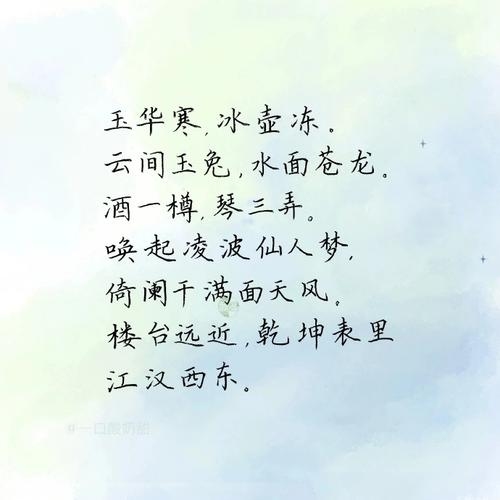 玉华寒,冰壶冻。
云间玉兔,水面苍龙。
酒一樽,琴三弄。
唤起凌波仙人梦,
倚阑干满面天风。
楼台远近,乾坤表里
江汉西东。
#一口酸奶甜